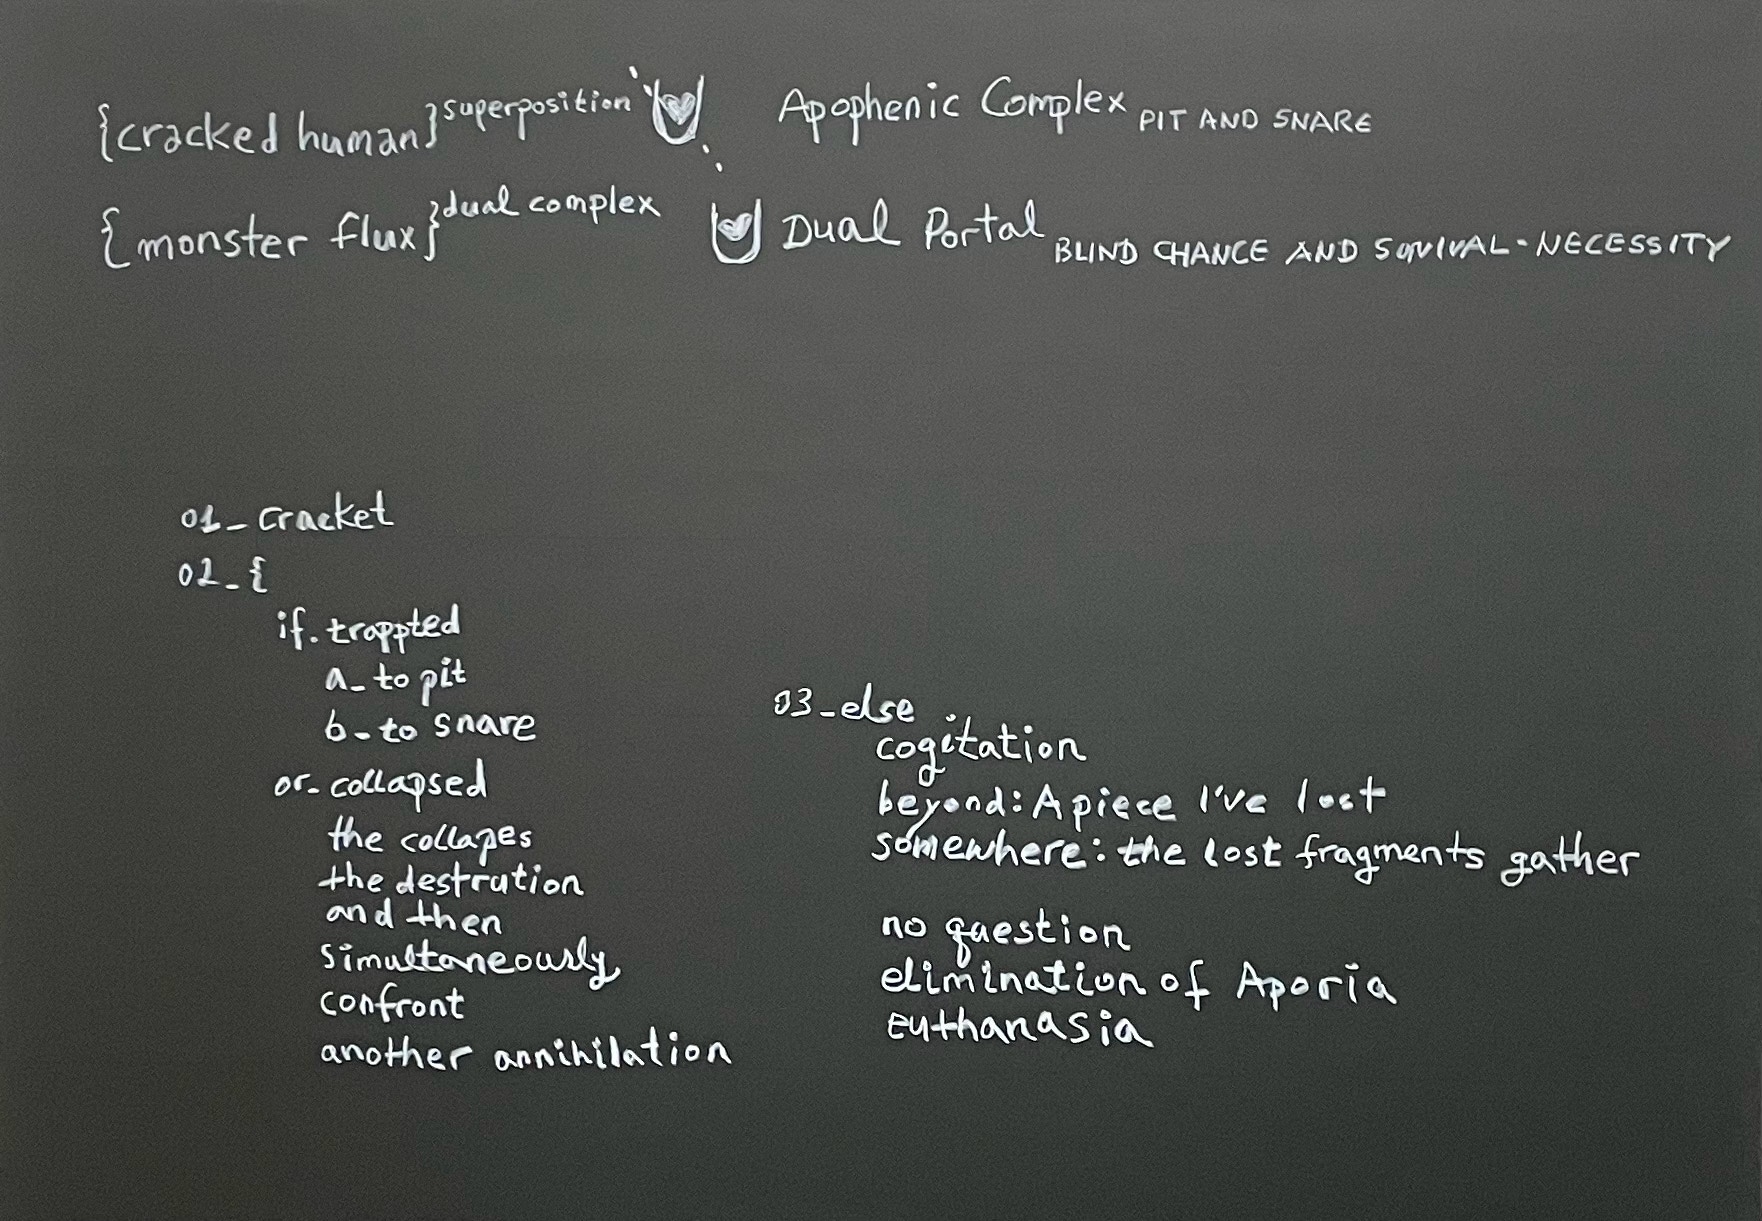 {cracked human}superposition Apophenic Complex PIT AND SNARE
{monster flux}dual complex Dual Portal BLIND CHANCE AND SQVIVAL-NECESSITY
01_cracket
02_{
if. troppted
a_ to pit
b_ to snare
or_ collapsed
the collapes
the destrution
and then
simultaneously
confront
another annihilation
03_else
cogitation
beyond: A piece I've lost
somewhere: the lost fragments gather
no question
elimination of Aporia
Euthanasia